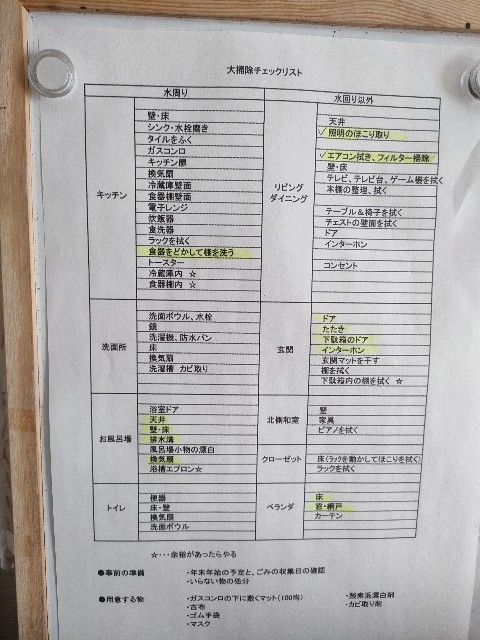 大掃除チェックリスト
水周り
キッチン
壁・床
シンク・水栓磨き
タイルをふく
ガスコンロ
キッチン扉
換気扇
冷蔵庫壁面
食器棚壁面
電子レンジ
炊飯器
食洗器
ラックを拭く
食器をどかして棚を洗う
トースター
冷蔵庫内 ☆
食器棚内 ☆
洗面所
洗面ボウル、水栓
鏡
洗濯機、防水パン
床
換気扇
洗濯槽 カビ取り
お風呂場
浴室ドア
天井
壁・床
排水溝
風呂場小物の漂白
換気扇
浴槽エプロン☆
トイレ
便器
床・壁
換気扇
洗面ボウル
水回り以外
リビング
ダイニング
天井
✓照明のほこり取り
✓エアコン拭き、フィルター掃除
壁・床
テレビ、テレビ台、ゲーム機を拭く
本棚の整理、拭く
テーブル＆椅子を拭く
チェストの壁面を拭く
ドア
インターホン
コンセント
玄関
ドア
たたき
下駄箱のドア
インターホン
玄関マットを干す
棚を拭く
下駄箱内の棚を拭く ☆
北側和室
壁
家具
ピアノを拭く
クローゼット
床(ラックを動かしてほこりを拭く)
ラックを拭く
ベランダ
床
窓・網戸
カーテン
☆・・・余裕があったらやる
●事前の準備
・年末年始の予定と、ごみの収集日の確認
・いらない物の処分
●用意する物
・ガスコンロの下に敷くマット(100均)
・古布
・ゴム手袋
・マスク
・酸素系漂白剤
・カビ取り剤